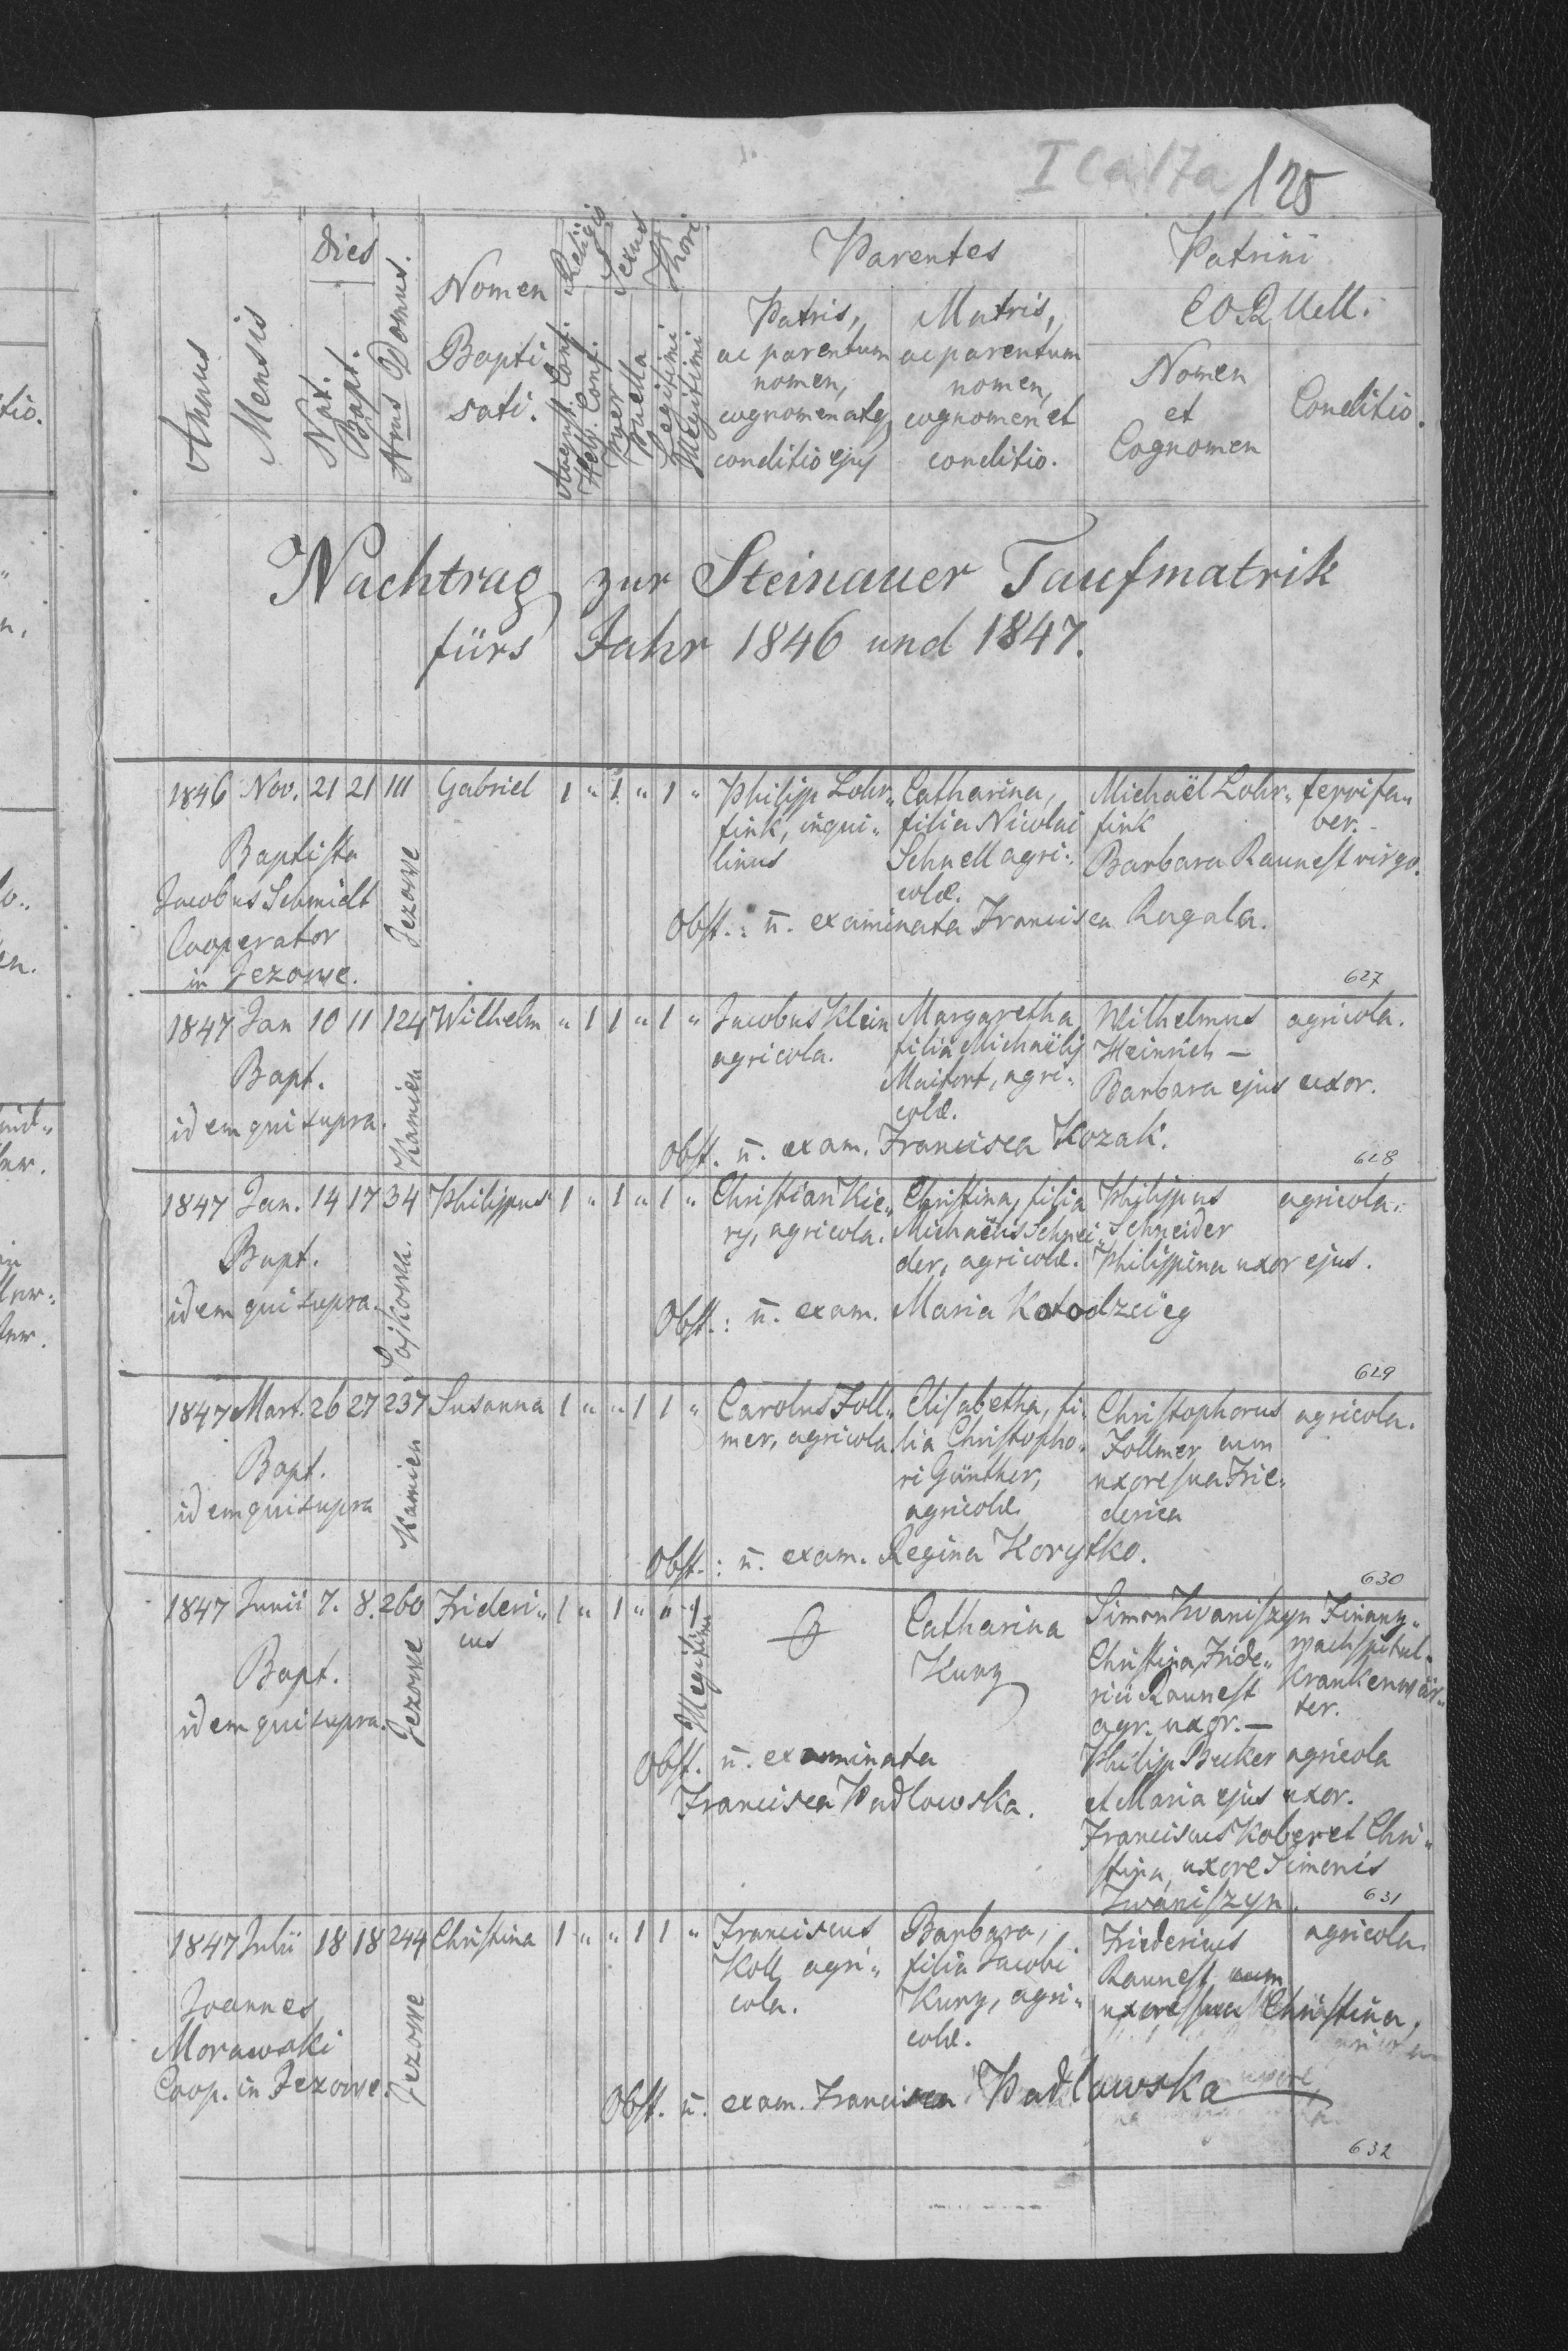 I Ca 17a 125
Dies
Parentes
Patrini
Annus
Mensis
Nat.
Bapt.
Nrus Domus.
Nomen
Bapti-
sati.
Religio
Augst. Conf.
Helv. Conf.
Sexus
Puer
Puella
Thori
Legitimi
Illegitimi
Patris,
ac parentum
nomen,
cognomen atq
conditio ejus
Matris,
ac parentum
nomen,
cognomen et
conditio.
Nomen
et
Cognomen
Conditio.
Nachtrag zur Steinauer Taufmatrik
fürs Jahr 1846 und 1847.
1846 Nov. 21 21 111 Gabriel 1 " 1. " 1 " Philipp Lohr„ Catharina, Michaël Lohr„ ferrifa„
fink, inqui„ filia Nicolai fink ber.-
Baptista linus Schnell agri: Barbara Raunest virgo.
Jacobus Schmidt Jezowe colæ.
Cooperator Obst.: ū. examinata Francisca Ragala.
in Jezowe. 627
1847 Jan 10 11 124 Wilhelm " 1 1 " 1 " Jacobus Klein Margaretha Wilhelmus agricola.
agricola. filia Michaëlis Heinrich —
Bapt. Maifort, agri: Barbara ejus uxor.
idem qui supra. Kamien colæ.
Obst. ū. exam. Francisca Kozak. 628
1847 Jan. 14 17 34 Philippus 1 " 1 " 1 " Christian Kie„ Christina, filia Philippus agricola.
ry, agricola. Michaëlis Schnei„ Schneider
Bapt. der, agricolæ. Philippina uxor ejus.
idem qui supra. Sojkowa.
Obst.: ū. exam. Maria Kołodzeieg
629
1847 Mart. 26 27 237 Susanna 1 " " 1 1 " Carolus Foll„ Elisabetha, fi„ Christophorus agricola.
mer, agricola. lia Christopho„ Follmer cum
Bapt. ri Günther, uxore sua Frie„
idem qui supra Kamien agricolæ. derica
Obst.: ū. exam. Regina Korytko. 630
1847 Junii 7. 8. 260 Frideri„ 1 " 1 " " 1 Catharina Simon Iwaniszyn Finanz„
cus Illegitimi Kunz Christina, Fride„ wachspital„
Bapt. rici Raunest Krankenwär„
idem qui supra. Jezowe agr. uxor. — ter.
Obst. ū. examinata Philipp Becker agricola
Francisca Padlowska. et Maria ejus uxor.
Franciscus Kober et Chri„
stina, uxore Simonis
Iwaniszyn. 631
1847 Julii 18 18 244 Christina 1 " " 1 1 " Franciscus Barbara, Fridericus agricola.
Koll agri„ filia Jacobi Raunest cum
Joannes cola. Kunz, agri„ uxore sua Christina.
Morawski Jezowe colæ.
Coop. in Jezowe.
Obst. ū. exam. Francisca Padlowska
632